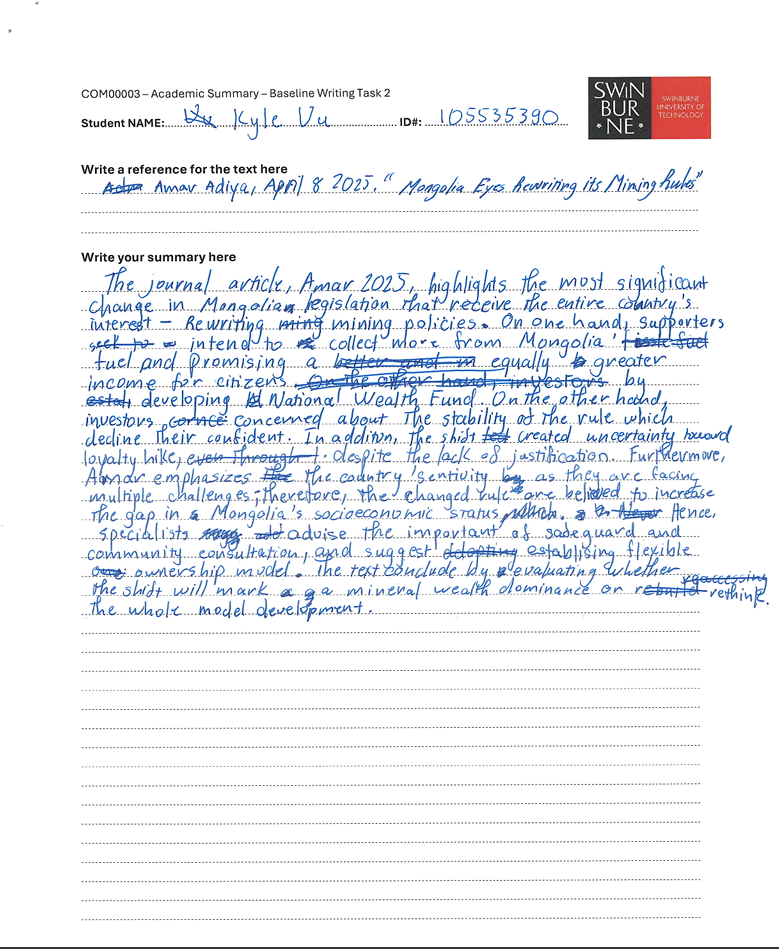 COM00003 – Academic Summary – Baseline Writing Task 2
SWIN
BUR
* NE *
SWINBURNE
UNIVERSITY OF
TECHNOLOGY
Student NAME: Kyle Vu ID#: 105535390
Write a reference for the text here
Amar Adiya, April 8 2025. "Mongolia Eyes Rewriting its Mining Rules"
Write your summary here
The journal article, Amar 2025, highlights the most significant
change in Mongolian legislation that receive the entire country's
interest – Rewriting mining policies. On one hand, supporters
intend to collect more from Mongolia'
fuel and promising a equally greater
income for citizens by
developing National Wealth Fund. On the other hand,
investors concerned about the stability of the rule which
decline their confident. In addition, the shift created uncertainty toward
loyalty hike, despite the lack of justification. Furthermore,
Amar emphasizes the country 'sentivity as they are facing
multiple challenges; therefore, the changed rule are believed to increase
the gap in Mongolia's socioeconomic status, Hence,
specialists advise the important of safeguard and
community consultation, and suggest establising flexible
ownership model. The text conclude by evaluating whether
the shift will mark a mineral wealth dominance or rethink.
the whole model development.